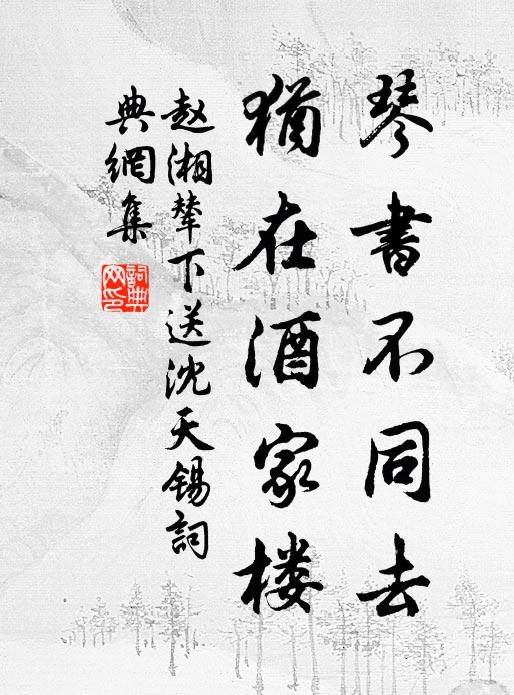 琴書不同去
猶在酒家楼
赵湘辇下送沈天锡詞
典網集
詞典
网印